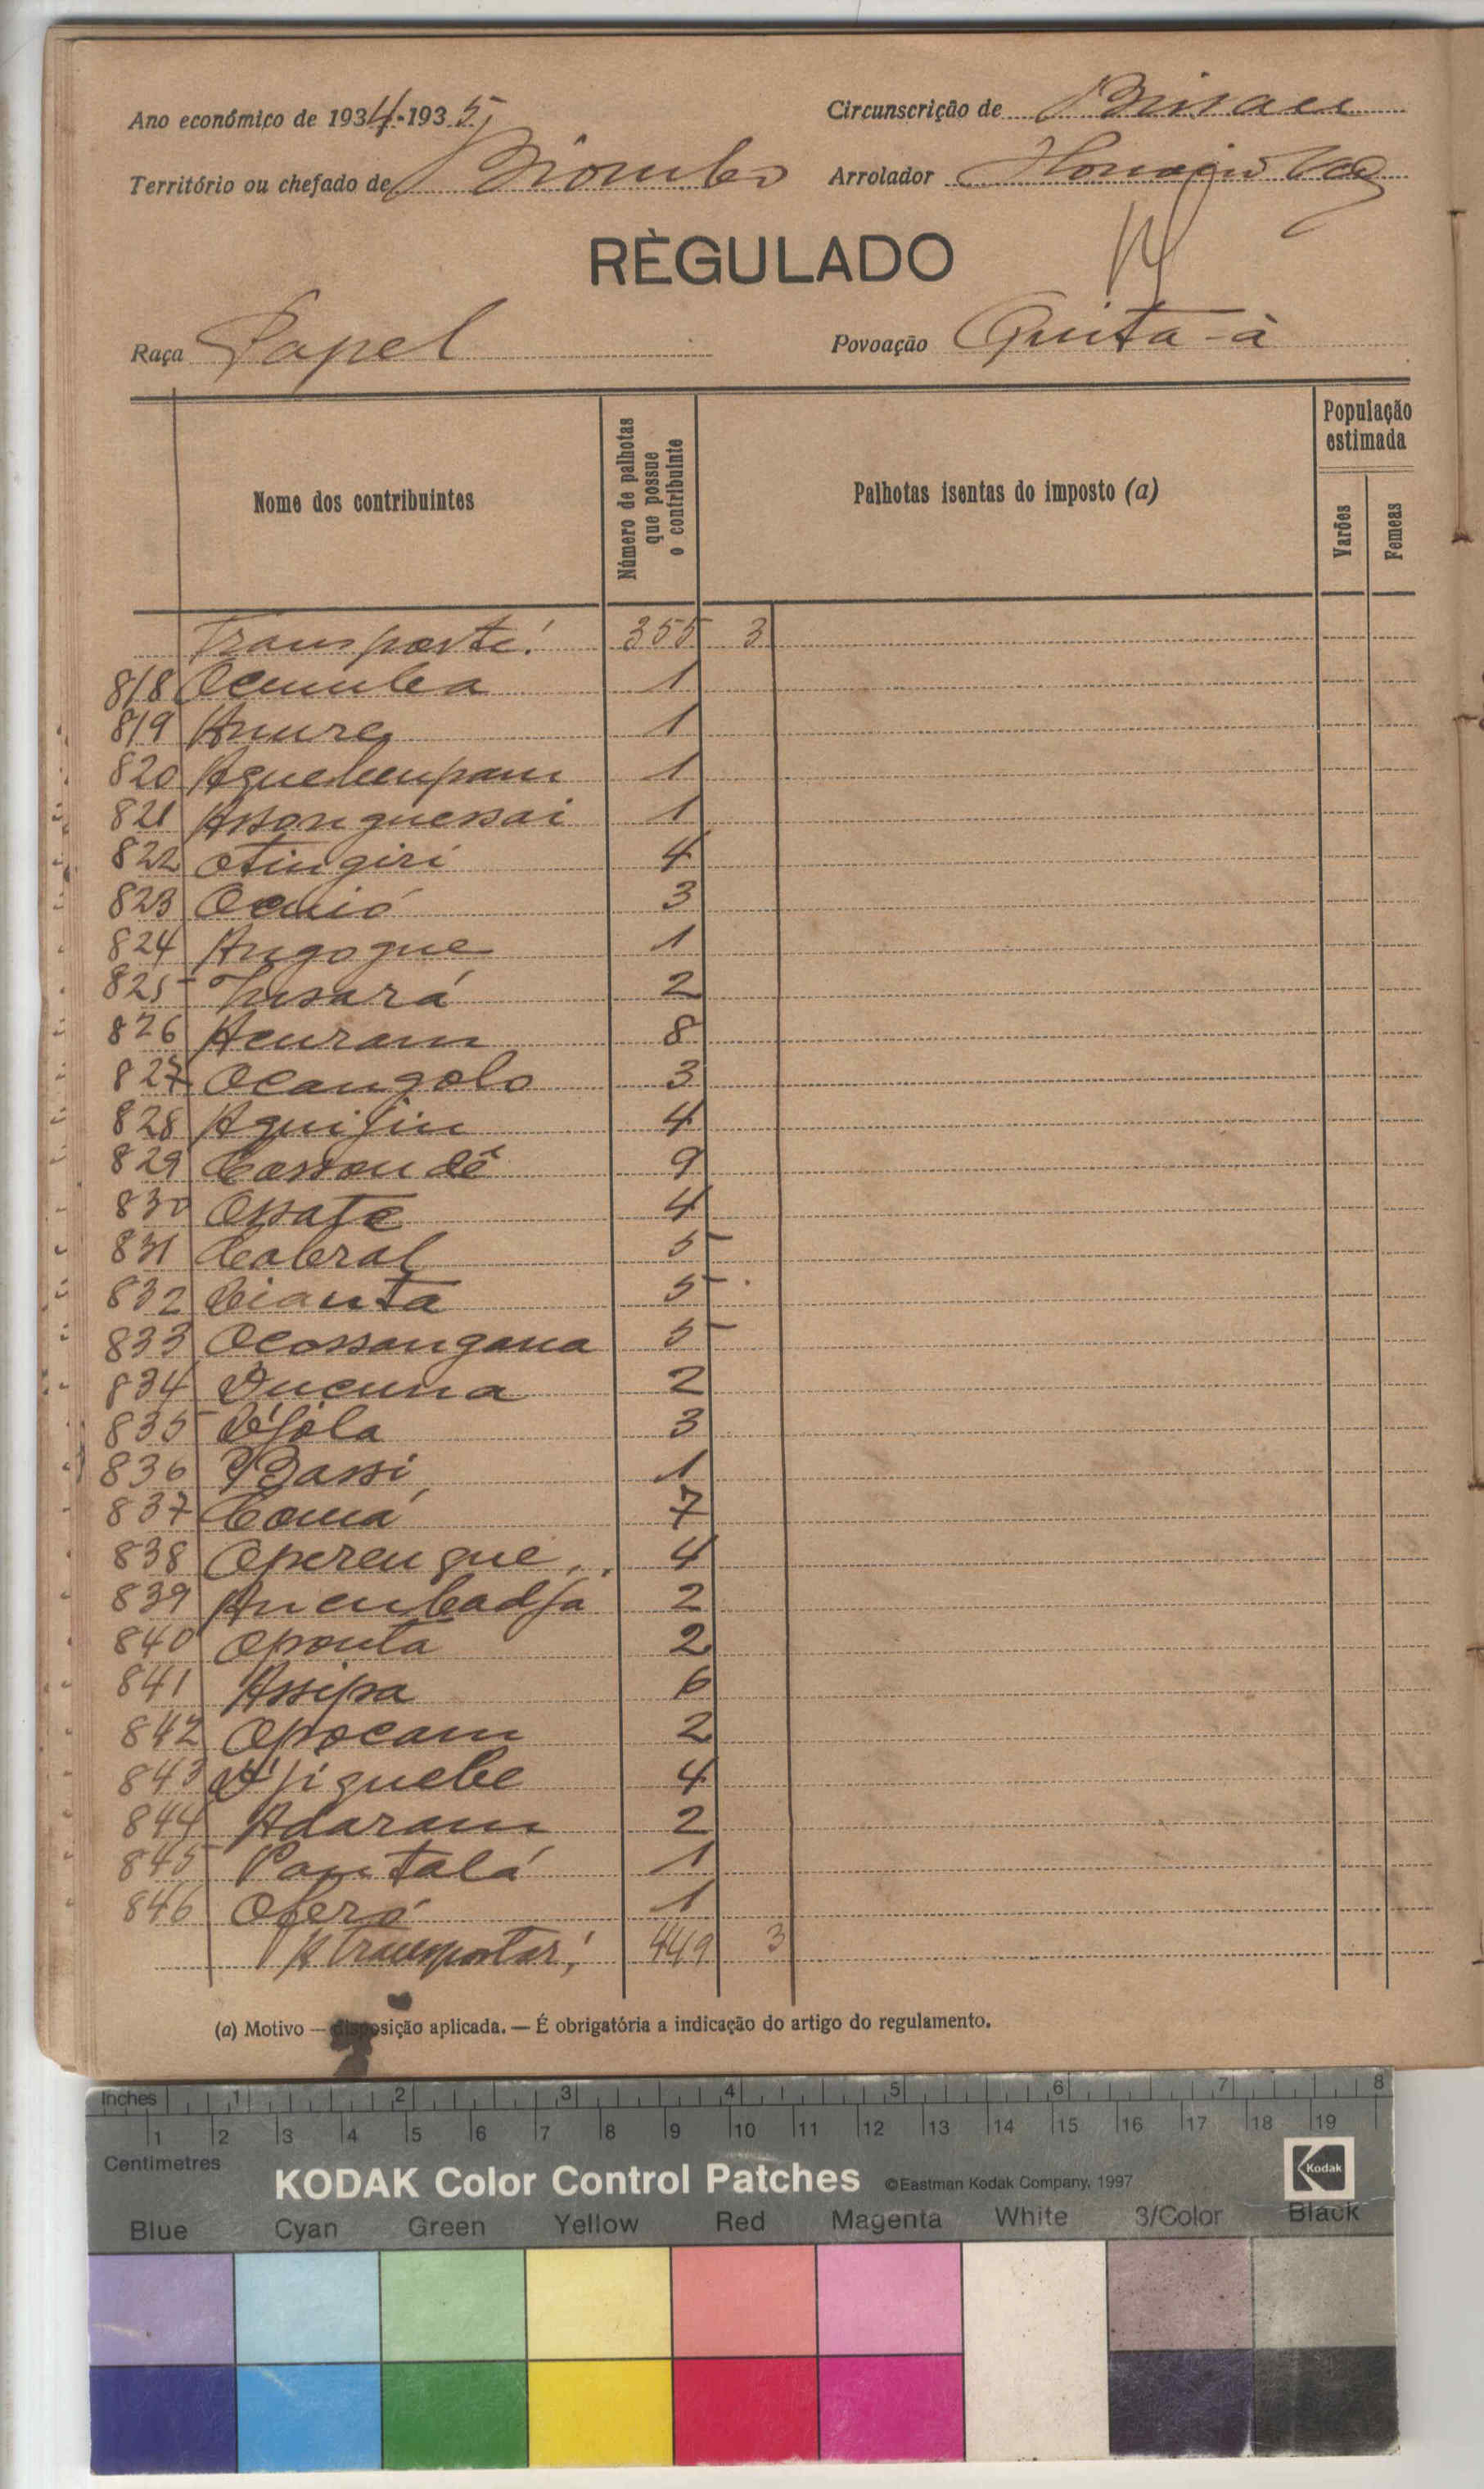 Ano económico de 1934-1935
Circunscrição de Bissau
Território ou chefado de Biombo
Arrolador Honorio Vaz
RÈGULADO
Raça Papel
Povoação Quita-à
Nome dos contribuintes
Número de palhotas que possue o contribuinte
Palhotas isentas do imposto (a)
População estimada
Varões
Femeas
Transporte! 355 3
818 Ocumba 1
819 Anure 1
820 1
821 Assonguessai 1
822 Otingiri 4
823 3
824 Angogue 1
825 2
826 Acuram 8
827 Ocangolo 3
828 Aquijin 4
829 Cassondê 9
830 Ossate 4
831 Cabral 5
832 Cianta 5
833 Ocossangana 5
834 Ducuna 2
835 3
836 Bassi 1
837 Comá 7
838 Operengue 4
839 Ancubadja 2
840 Oponta 2
841 Assipa 6
842 Opocam 2
843 4
844 Adaram 2
845 Pontalá 1
846 Oferó 1
A transportar! 449 3
(a) Motivo — disposição aplicada. — É obrigatória a indicação do artigo do regulamento.
Inches 1 2 3 4 5 6 7 8
1 2 3 4 5 6 7 8 9 10 11 12 13 14 15 16 17 18 19
Centimetres
KODAK Color Control Patches ©Eastman Kodak Company, 1997 Kodak
Blue Cyan Green Yellow Red Magenta White 3/Color Black